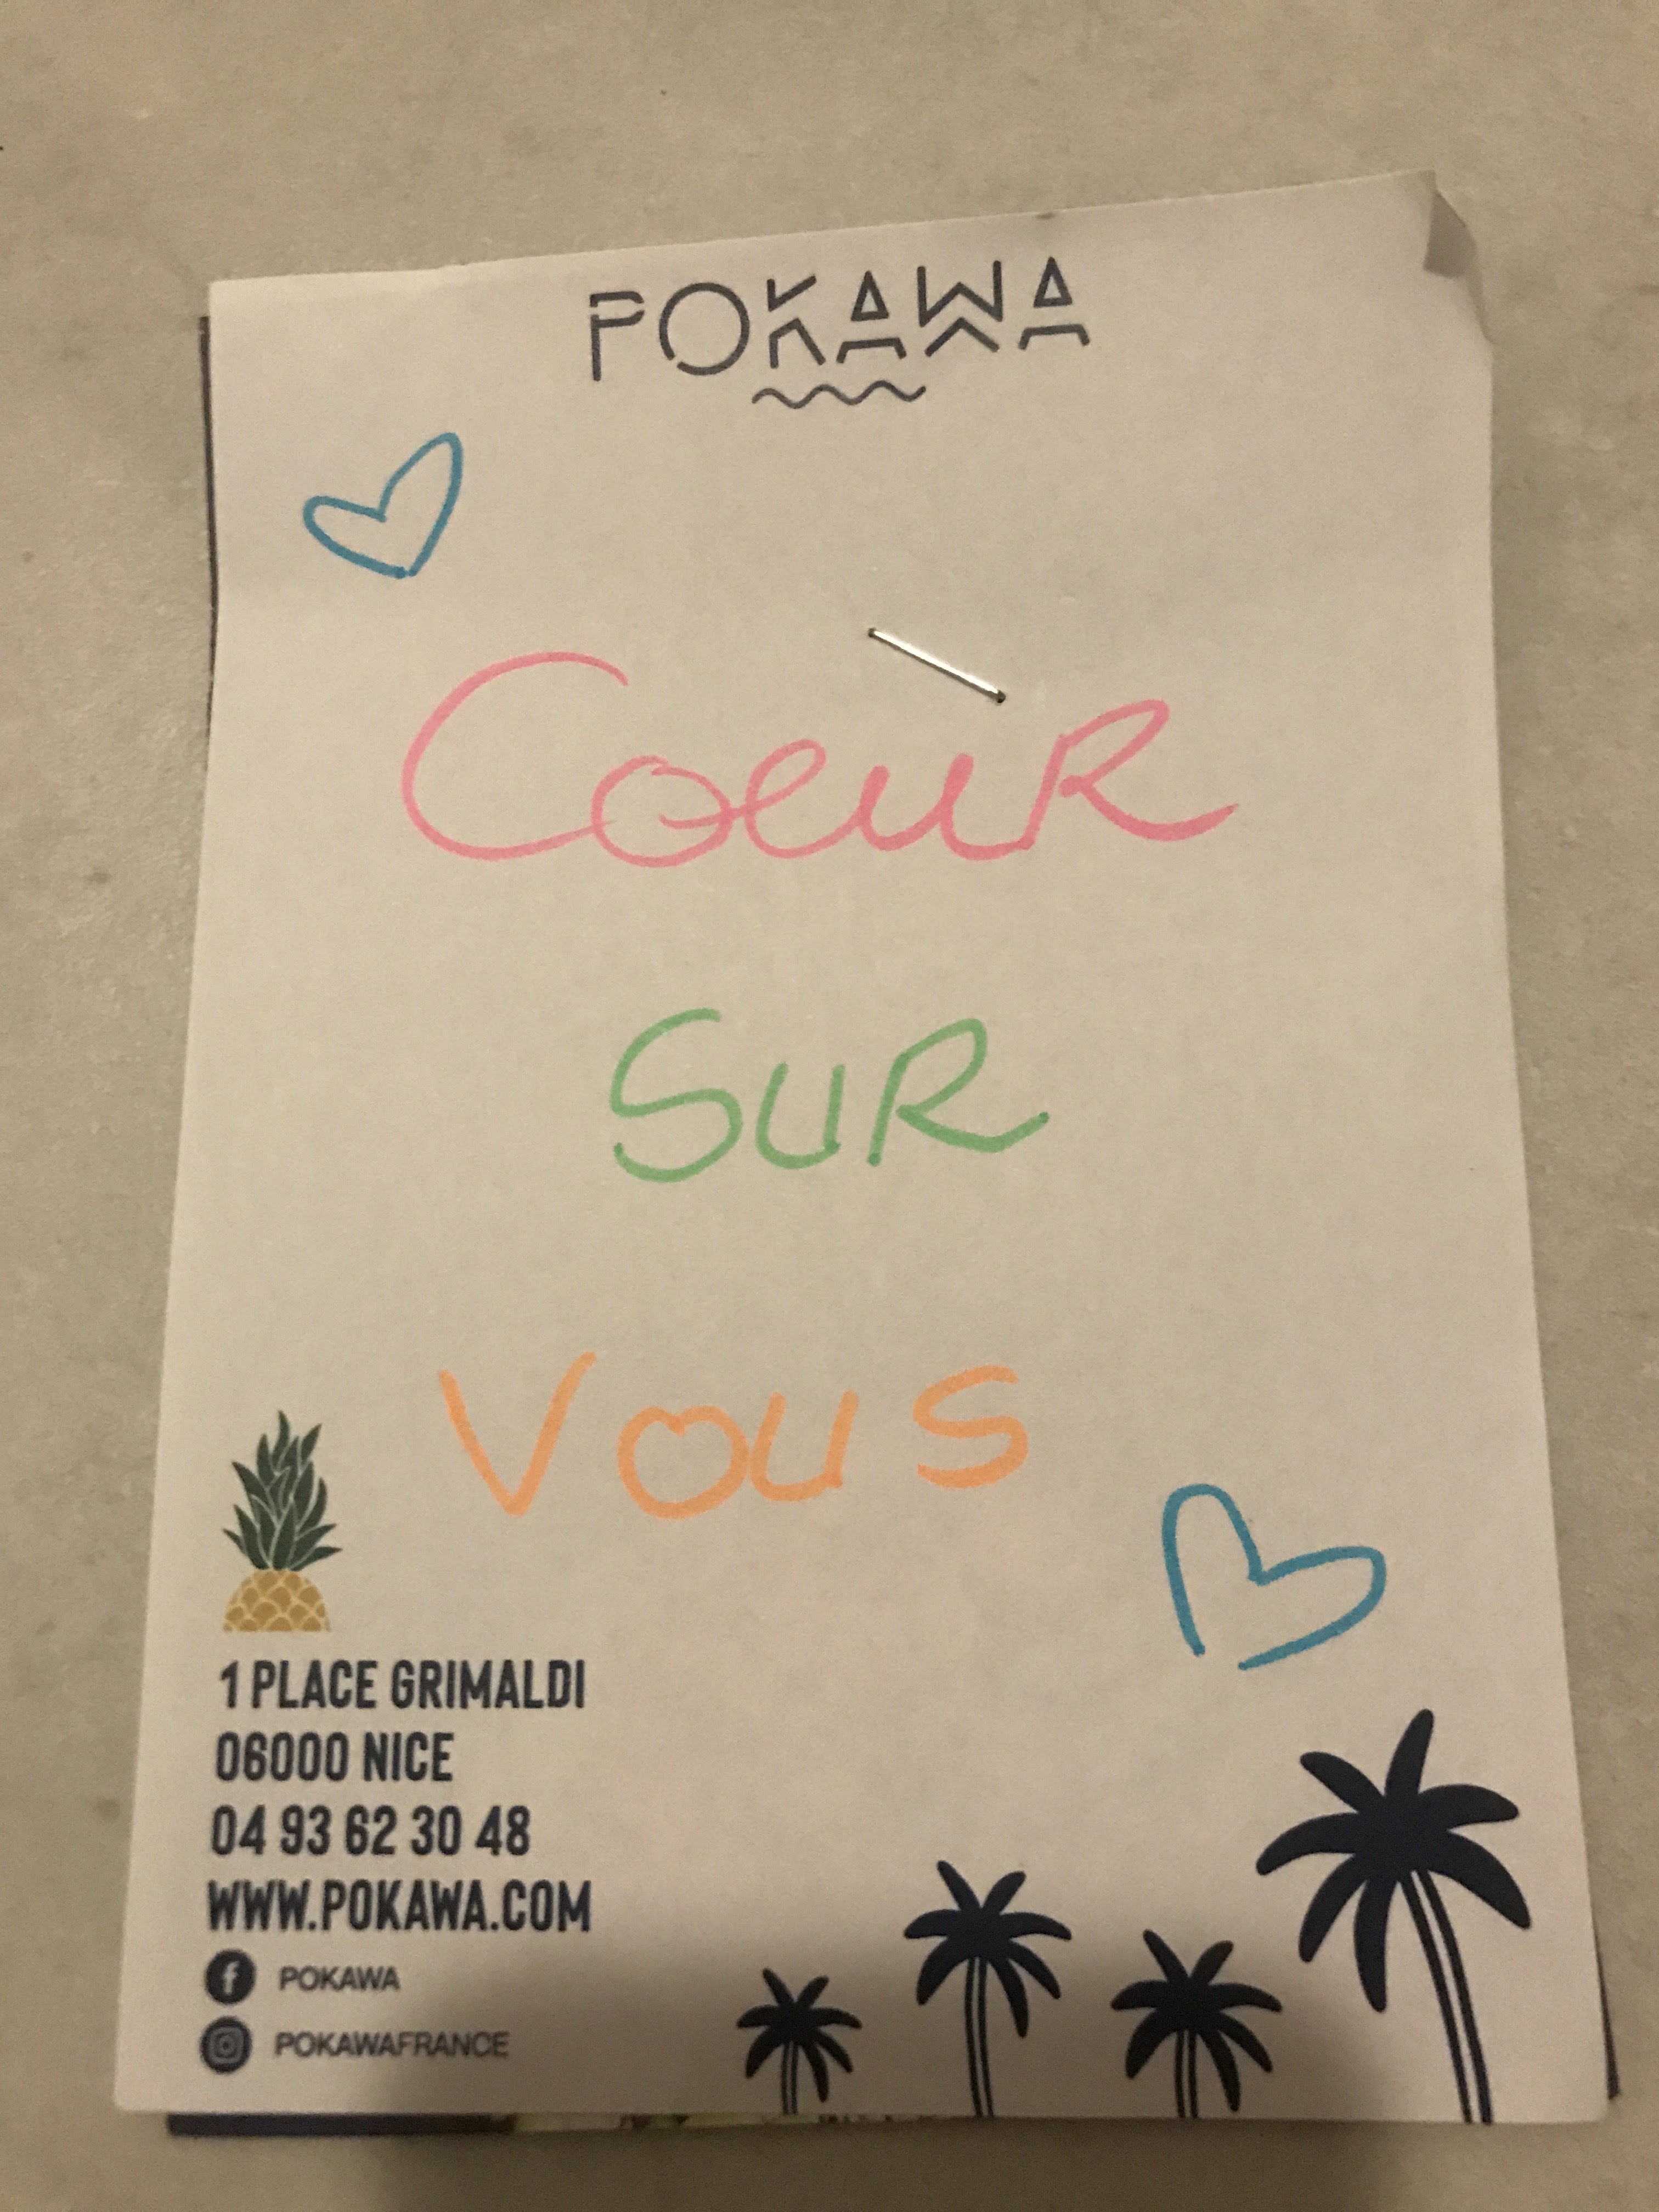 POKAWA
Coeur
SUR
Vous
1 PLACE GRIMALDI
06000 NICE
04 93 62 30 48
WWW.POKAWA.COM
POKAWA
POKAWAFRANCE